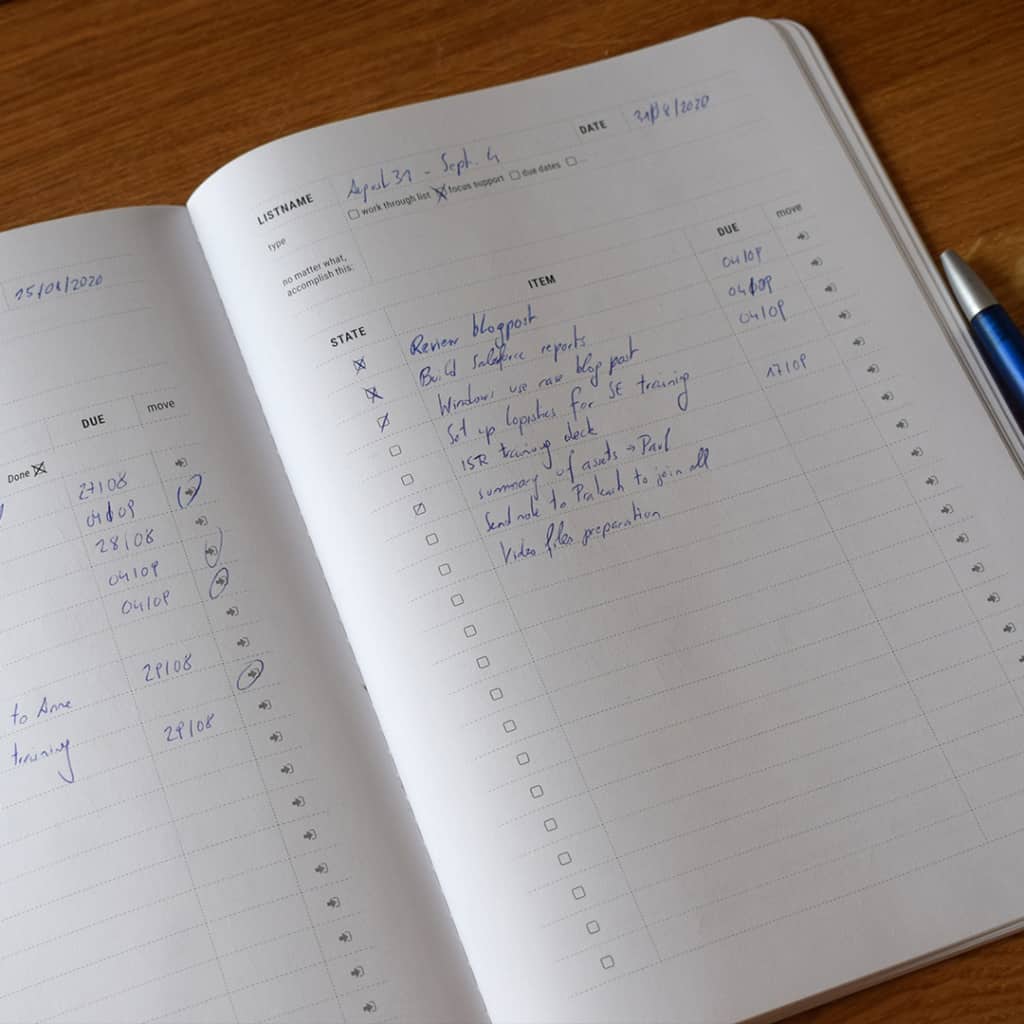 25/08/2020
DUE
move
Done
27/08
04/09
28/08
04/09
04/09
29/08
to Anne
29/08
training
LISTNAME
August 31 - Sept. 4
DATE
31/8/2020
type
work through list
focus support
due dates
...
no matter what,
accomplish this:
STATE
ITEM
DUE
move
Review blogpost
04/09
Build Salesforce reports
04/09
Windows use case blog post
04/09
Set up logistics for SE training
ISR training deck
17/09
summary of assets → Paul
Send note to Prakash to join all
Video files preparation